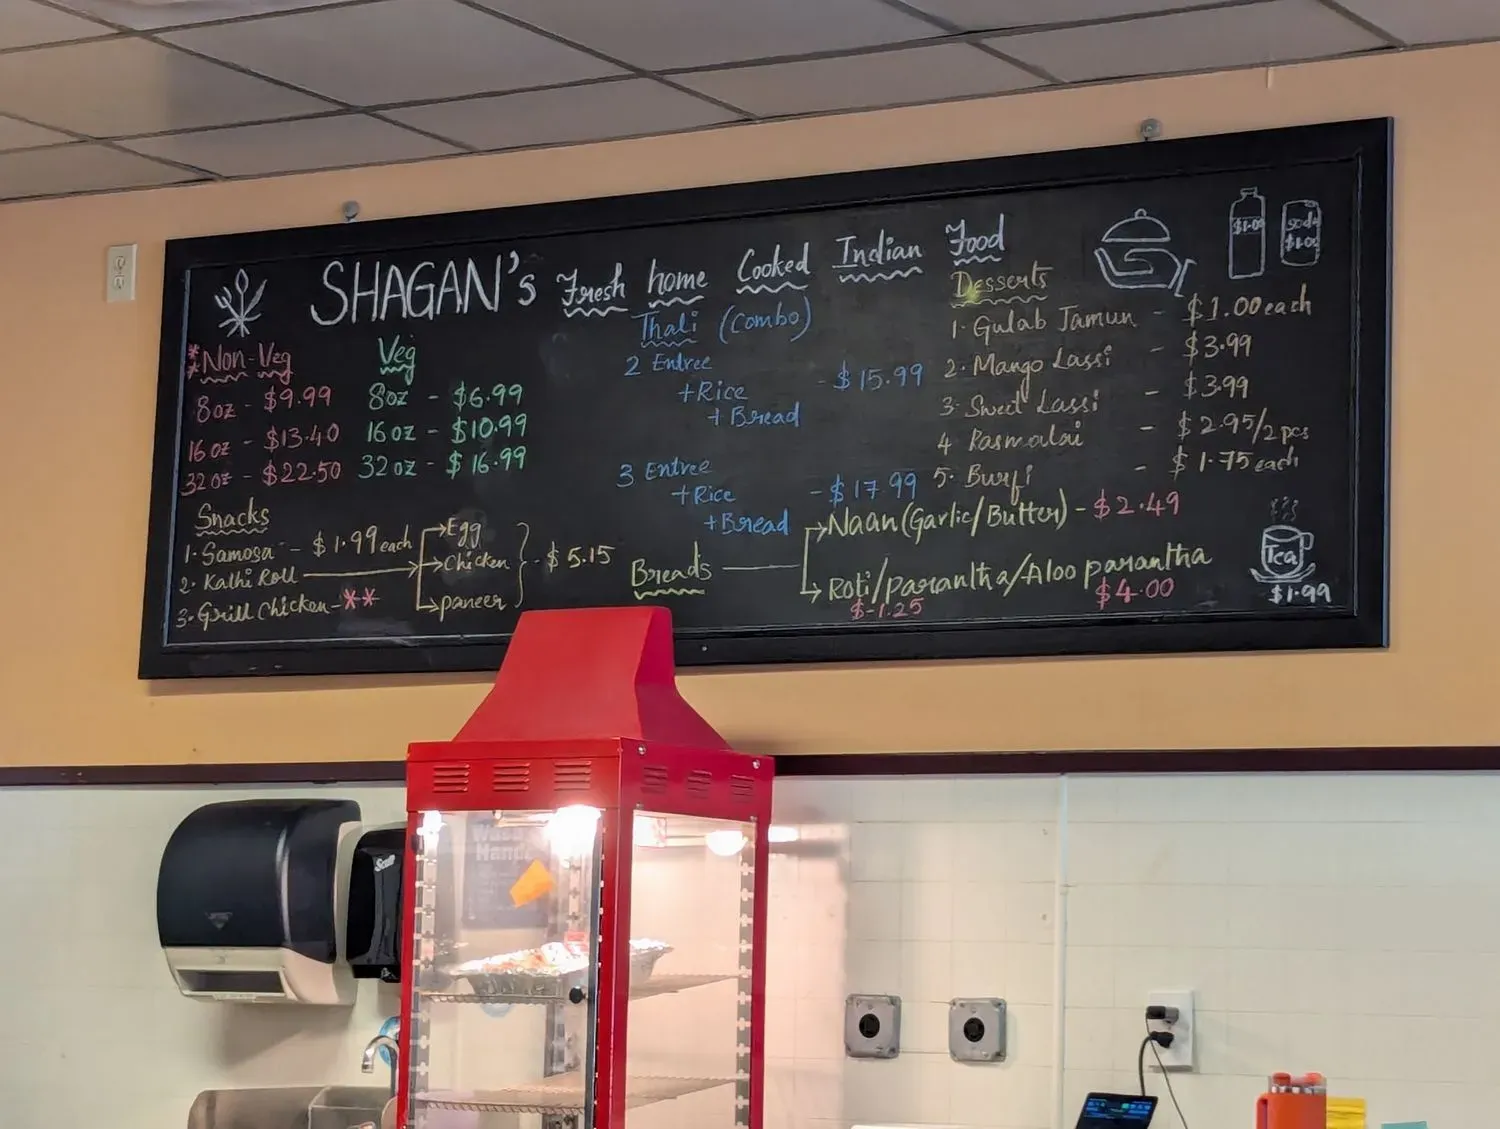 SHAGAN's Fresh home Cooked Indian Food
**Non-Veg
8oz - $9.99
16 oz - $13.40
32 oz - $22.50
Veg
8oz - $6.99
16 oz - $10.99
32 oz - $16.99
Snacks
1. Samosa - $1.99 each
2. Kathi Roll
Egg
Chicken
paneer
- $5.15
3. Grill Chicken - **
Thali (Combo)
2 Entree
+ Rice - $15.99
+ Bread
3 Entree
+ Rice - $17.99
+ Bread
Breads
Naan (Garlic/Butter) - $2.49
Roti/parantha/Aloo parantha
$-1.25 $4.00
Desserts
1. Gulab Jamun - $1.00 each
2. Mango Lassi - $3.99
3. Sweet Lassi - $3.99
4 Rasmalai - $2.95/2 pcs
5. Burfi - $1.75 each
$1.00
soda
$1.00
Tea
$1.99
Scott
Hands